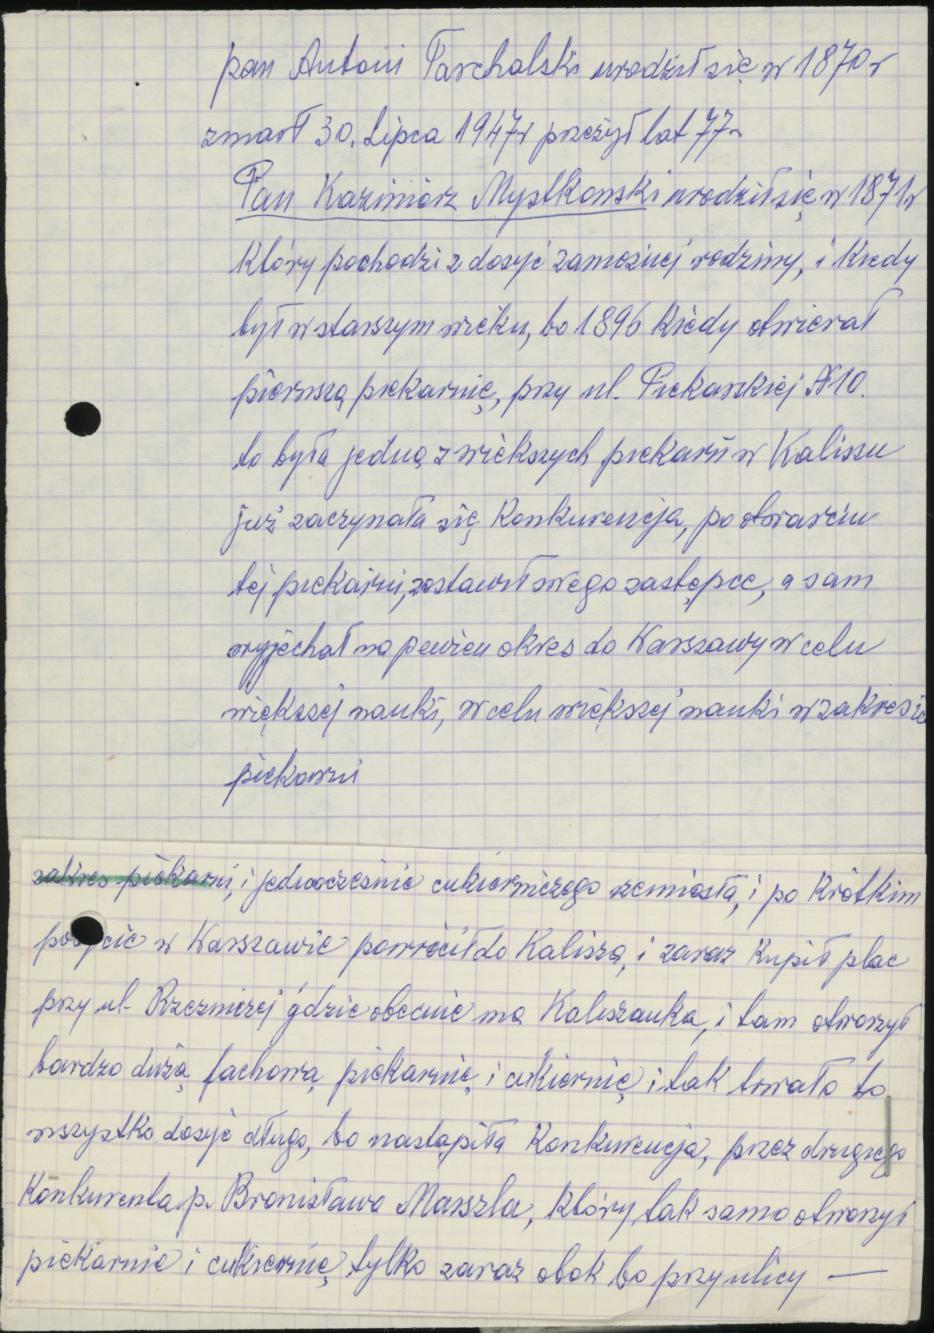 pan Antoni Parchalski urodził się w 1870 r
zmarł 30. Lipca 1947r przeżył lat 77
Pan Kazimiérz Mystkowski urodził się w 1871r
który pochodzi z dosyć zamożnej rodziny, i kiedy
był w starszym wieku, bo 1896 kiedy otwierał
pierwszą piekarnię, przy ul. Piekarskiej N10.
to była jedną z większych piekarń w Kaliszu
już zaczynała się konkurencja, po otwarciu
tej piekarni, zostawił swego zastępce, a sam
wyjechał na pewien okres do Warszawy w celu
większej nauki, w celu większej nauki w zakresie
piekarni
zakres piekarni, i jednocześnie cukierniczego rzemiosła, i po krótkim
pobycie w Warszawie powrócił do Kalisza, i zaraz kupił plac
przy ul. Rzezniczej gdzie obecnie ma Kaliszanka, i tam otworzył
bardzo dużą fachową piekarnię i cukiernię i tak trwało to
wszystko dosyć długo, bo nastąpiła konkurencja, przez drugiego
konkurenta p. Bronisława Marszla, który tak samo otworzył
piekarnie i cukiernię tylko zaraz obok bo przy ulicy —